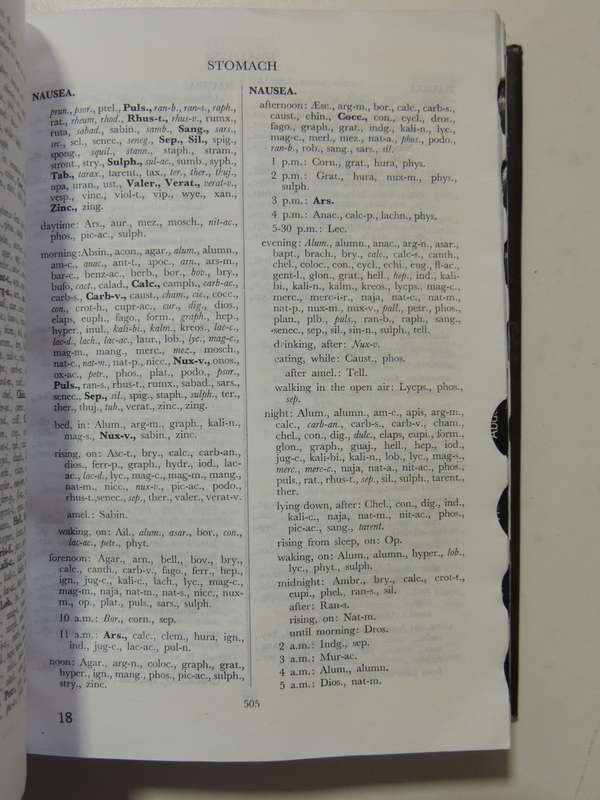 STOMACH
NAUSEA.
prun., psor., ptel., Puls., ran-b., ran-s., raph.,
rat., rheum, rhod., Rhus-t., rhus-v., rumx.,
ruta, sabad., sabin., samb., Sang., sars.,
sec., sel., senec., seneg., Sep., Sil., spig.,
spong., squil., stann., staph., stram.,
stront., stry., Sulph., sul-ac., sumb., syph.,
Tab., tarax., tarent., tax., ter., ther., thuj.,
upa, uran., ust., Valer., Verat., verat-v.,
vesp., vinc., viol-t., vip., wye., xan.,
Zinc., zing.
daytime: Ars., aur., mez., mosch., nit-ac.,
phos., pic-ac., sulph.
morning: Absin., acon., agar., alum., alumn.,
am-c., anac., ant-t., apoc., arn., ars-m.,
bar-c., benz-ac., berb., bor., bov., bry.,
bufo, cact., calad., Calc., camph., carb-ac.,
carb-s., Carb-v., caust., cham., cic., cocc.,
con., crot-h., cupr-ac., cur., dig., dios.,
elaps, euph., fago., form., graph., hep.,
hyper., inul., kali-bi., kalm., kreos., lac-c.,
lac-d., lach., lac-ac., laur., lob., lyc., mag-c.,
mag-m., mang., merc., mez., mosch.,
nat-c., nat-m., nat-p., nicc., Nux-v., onos.,
ox-ac., petr., phos., plat., podo., psor.,
Puls., ran-s., rhus-t., rumx., sabad., sars.,
senec., Sep., sil., spig., staph., sulph., ter.,
ther., thuj., tub., verat., zinc., zing.
bed, in: Alum., arg-m., graph., kali-n.,
mag-s., Nux-v., sabin., zinc.
rising, on: Asc-t., bry., calc., carb-an.,
dios., ferr-p., graph., hydr., iod., lac-
ac., lac-d., lyc., mag-c., mag-m., mang.,
nat-m., nicc., nux-v., pic-ac., podo.,
rhus-t., senec., sep., ther., valer., verat-v.
amel.: Sabin.
waking, on: Ail., alum., asar., bor., con.,
lac-ac., petr., phyt.
forenoon: Agar., arn., bell., bov., bry.,
calc., canth., carb-v., fago., ferr., hep.,
ign., jug-c., kali-c., lach., lyc., mag-c.,
mag-m., naja, nat-m., nat-s., nicc., nux-
m., op., plat., puls., sars., sulph.
10 a.m.: Bor., corn., sep.
11 a.m.: Ars., calc., clem., hura, ign.,
ind., jug-c., lac-ac., pul-n.
noon: Agar., arg-n., coloc., graph., grat.,
hyper., ign., mang., phos., pic-ac., sulph.,
stry., zinc.
18
NAUSEA.
afternoon: Æsc., arg-m., bor., calc., carb-s.,
caust., chin., Cocc., con., cycl., dros.,
fago., graph., grat., indg., kali-n., lyc.,
mag-c., merl., mez., nat-a., phos., podo.,
ran-b., rob., sang., sars., sil.
1 p.m.: Corn., grat., hura, phys.
2 p.m.: Grat., hura, nux-m., phys.,
sulph.
3 p.m.: Ars.
4 p.m.: Anac., calc-p., lachn., phys.
5-30 p.m.: Lec.
evening: Alum., alumn., anac., arg-n., asar.,
bapt., brach., bry., calc., calc-s., canth.,
chel., coloc., con., cycl., echi., eug., fl-ac.,
gent-l., glon., grat., hell., hep., ind., kali-
bi., kali-n., kalm., kreos., lycps., mag-c.,
merc., merc-i-r., naja, nat-c., nat-m.,
nat-p., nux-m., nux-v., pall., petr., phos.,
plan., plb., puls., ran-b., raph., sang.,
senec., sep., sil., sin-n., sulph., tell.
drinking, after: Nux-v.
eating, while: Caust., phos.
after amel.: Tell.
walking in the open air: Lycps., phos.,
sep.
night: Alum., alumn., am-c., apis, arg-m.,
calc., carb-an., carb-s., carb-v., cham.,
chel., con., dig., dulc., elaps, eupi., form.,
glon., graph., guaj., hell., hep., iod.,
jug-c., kali-bi., kali-n., lob., lyc., mag-s.,
merc., merc-c., naja, nat-a., nit-ac., phos.,
puls., rat., rhus-t., sep., sil., sulph., tarent.,
ther.
lying down, after: Chel., con., dig., ind.,
kali-c., naja, nat-m., nit-ac., phos.,
pic-ac., sang., tarent.
rising from sleep, on: Op.
waking, on: Alum., alumn., hyper., lob.,
lyc., phyt., sulph.
midnight: Ambr., bry., calc., crot-t.,
eupi., phel., ran-s., sil.
after: Ran-s.
rising, on: Nat-m.
until morning: Dros.
2 a.m.: Indg., sep.
3 a.m.: Mur-ac.
4 a.m.: Alum., alumn.
5 a.m.: Dios., nat-m.
505